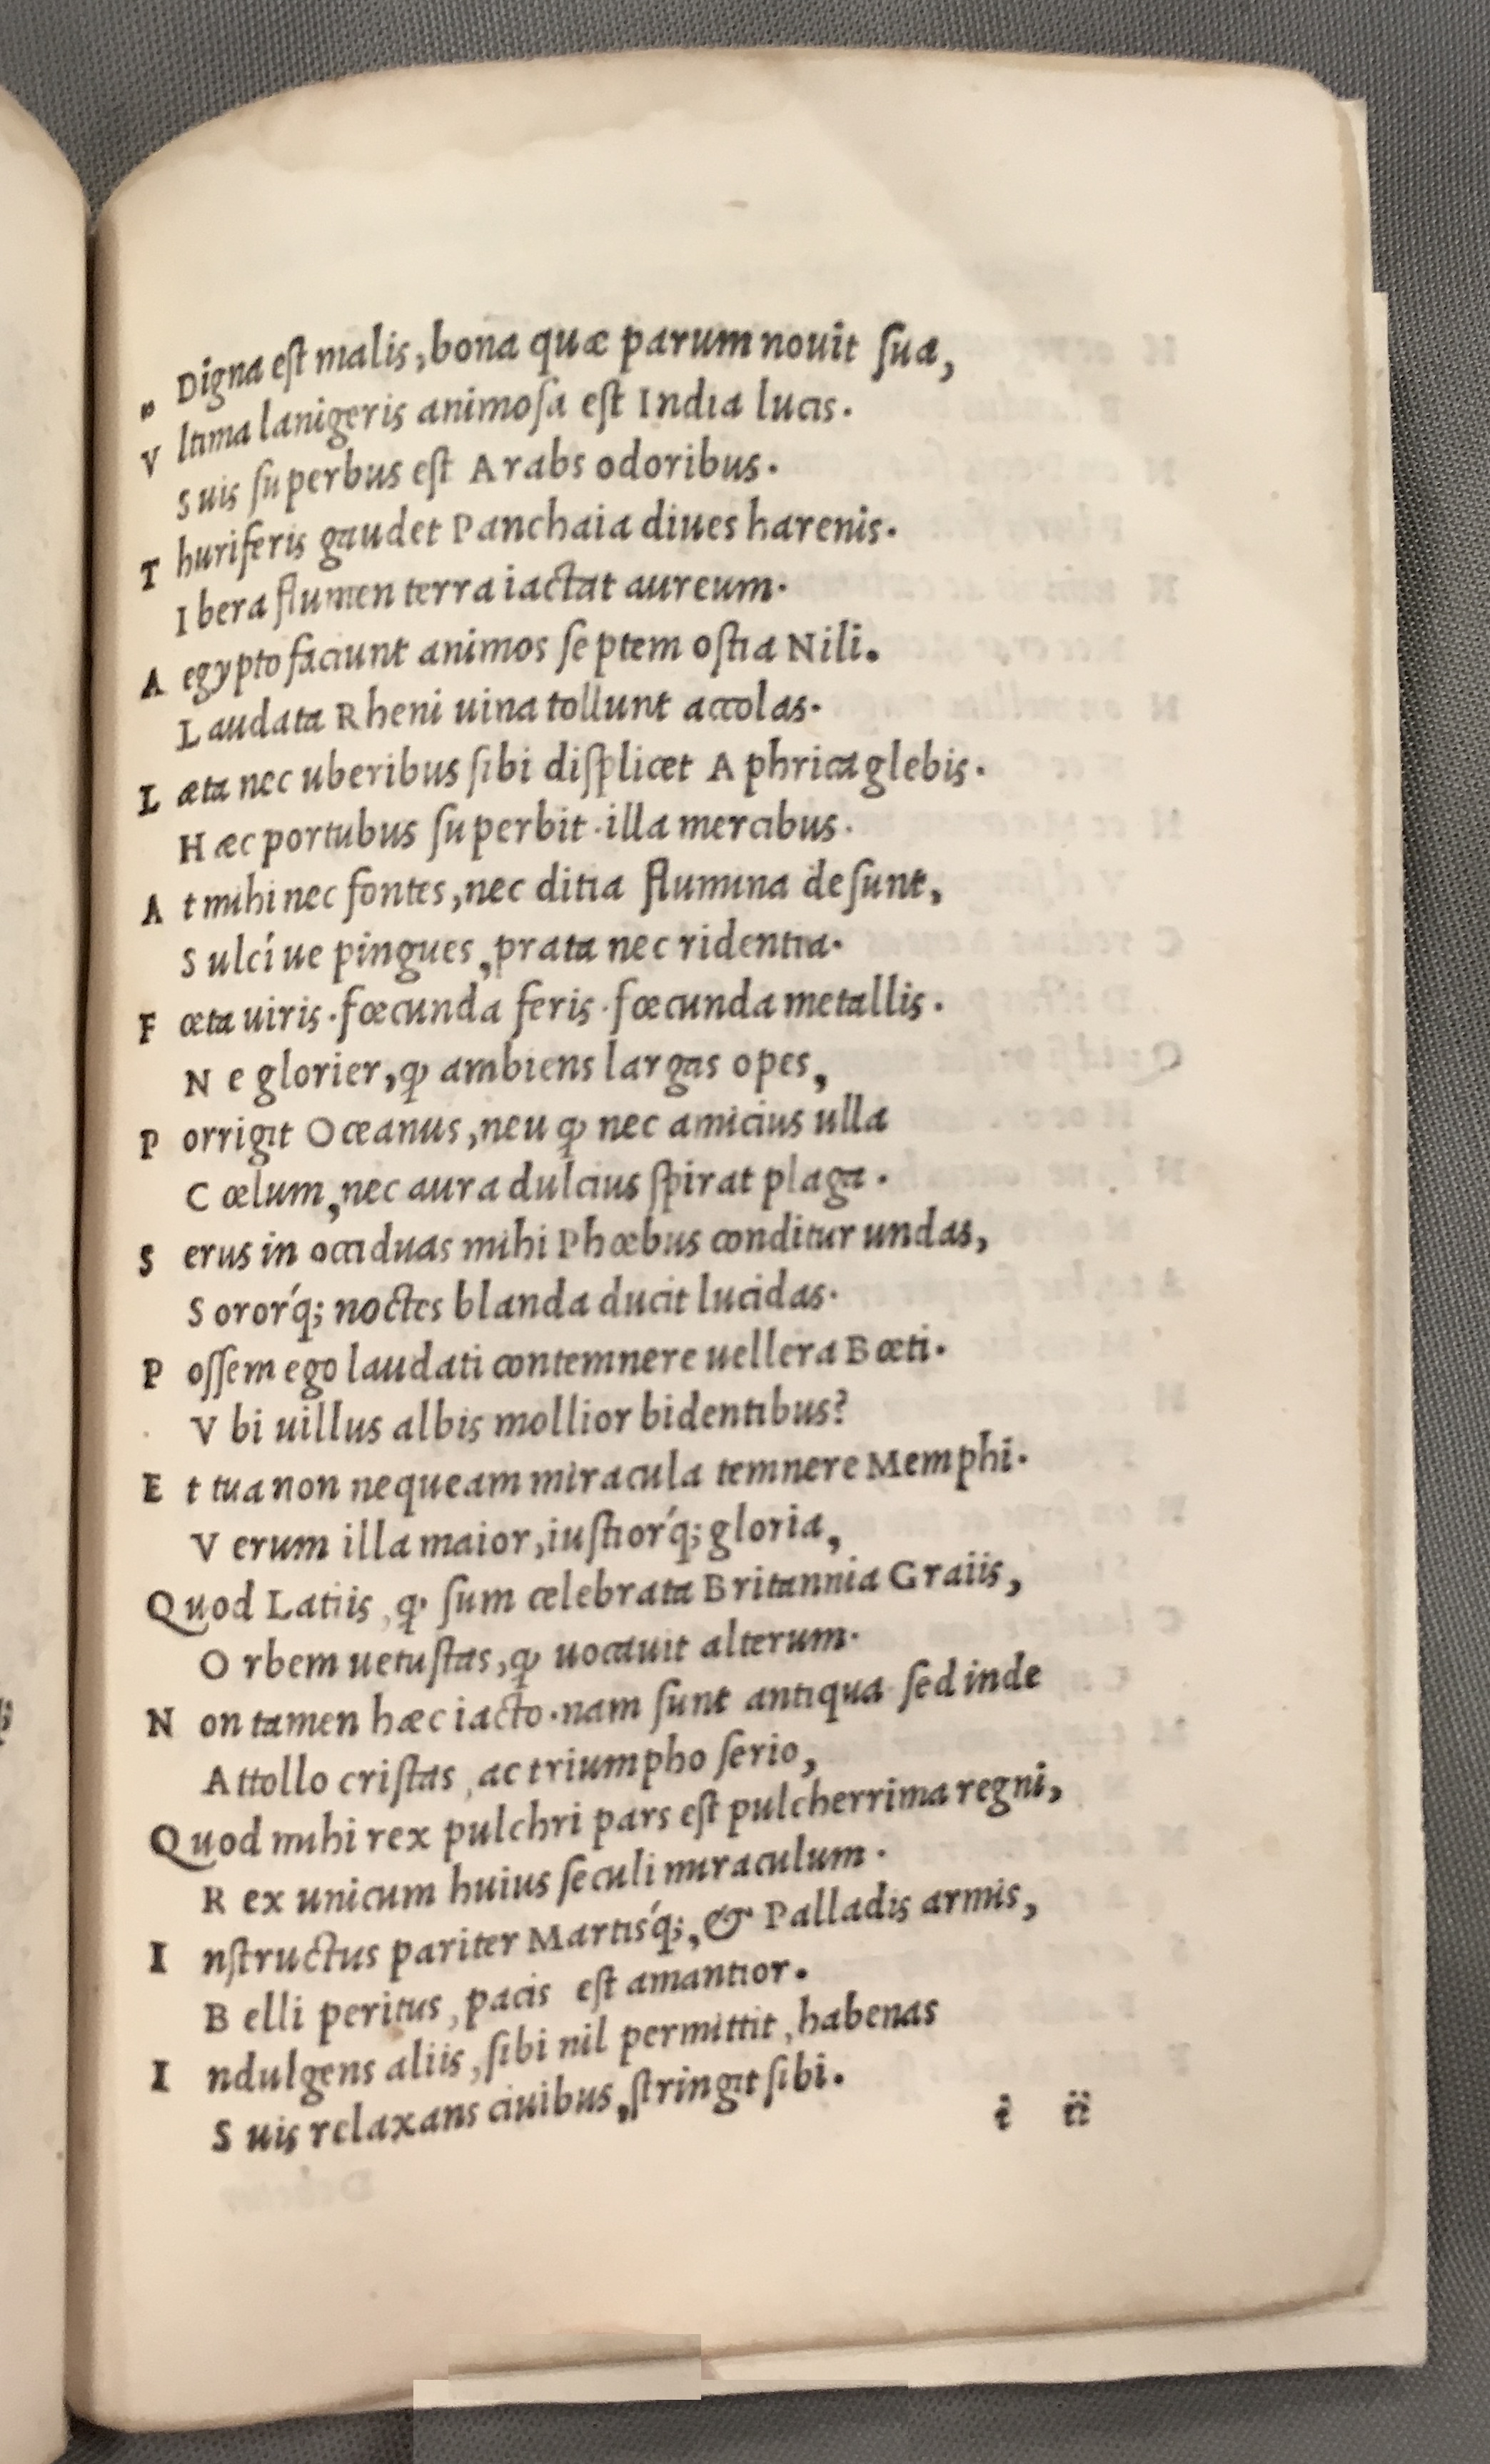 „ Digna est malis, bona quæ parum nouit sua,
V ltima lanigeris animosa est India lucis.
S uis superbus est Arabs odoribus.
T huriferis gaudet Panchaia diues harenis.
I bera flumen terra iactat aureum.
A egypto faciunt animos septem ostia Nili.
L audata Rheni uina tollunt accolas.
L æta nec uberibus sibi displicet Aphrica glebis.
H æc portubus superbit. illa mercibus.
A t mihi nec fontes, nec ditia flumina desunt,
S ulcíue pingues, prata nec ridentia.
F œta uiris. fœcunda feris. fœcunda metallis.
N e glorier, ꝙ ambiens largas opes,
P orrigit Oceanus, neu ꝙ nec amicius ulla
C œlum, nec aura dulcius spirat plaga.
S erus in occiduas mihi Phœbus conditur undas,
S ororq́; noctes blanda ducit lucidas.
P ossem ego laudati contemnere uellera Bœti.
V bi uillus albis mollior bidentibus?
E t tua non nequeam miracula temnere Memphi.
V erum illa maior, iustiorq́; gloria,
Quod Latiis, ꝙ sum celebrata Britannia Graiis,
O rbem uetustas, ꝙ uocauit alterum.
N on tamen hæc iacto. nam sunt antiqua sed inde
A ttollo cristas, ac triumpho serio,
Quod mihi rex pulchri pars est pulcherrima regni,
R ex unicum huius seculi miraculum.
I nstructus pariter Martisq́;, & Palladis armis,
B elli peritus, pacis est amantior.
I ndulgens aliis, sibi nil permittit, habenas
S uis relaxans ciuibus, stringit sibi.
i ii